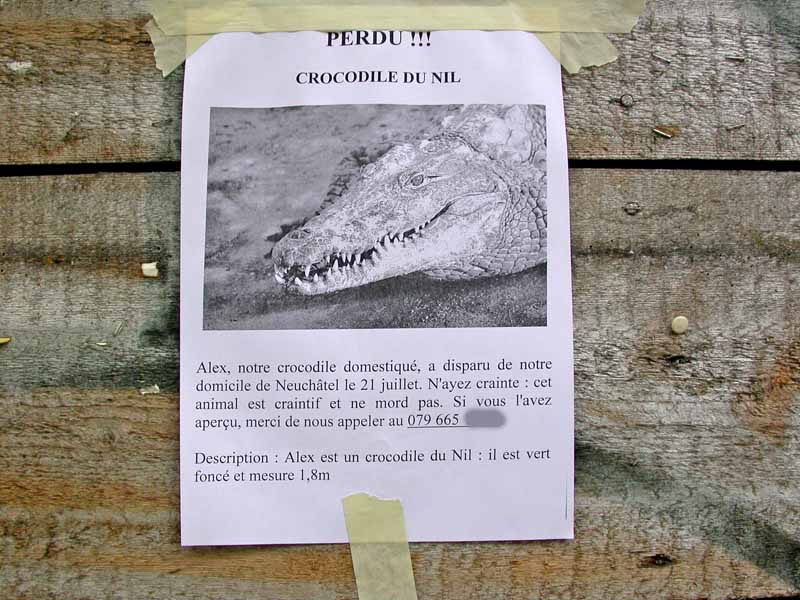 PERDU !!!
CROCODILE DU NIL
Alex, notre crocodile domestiqué, a disparu de notre
domicile de Neuchâtel le 21 juillet. N'ayez crainte : cet
animal est craintif et ne mord pas. Si vous l'avez
aperçu, merci de nous appeler au 079 665
Description : Alex est un crocodile du Nil : il est vert
foncé et mesure 1,8m